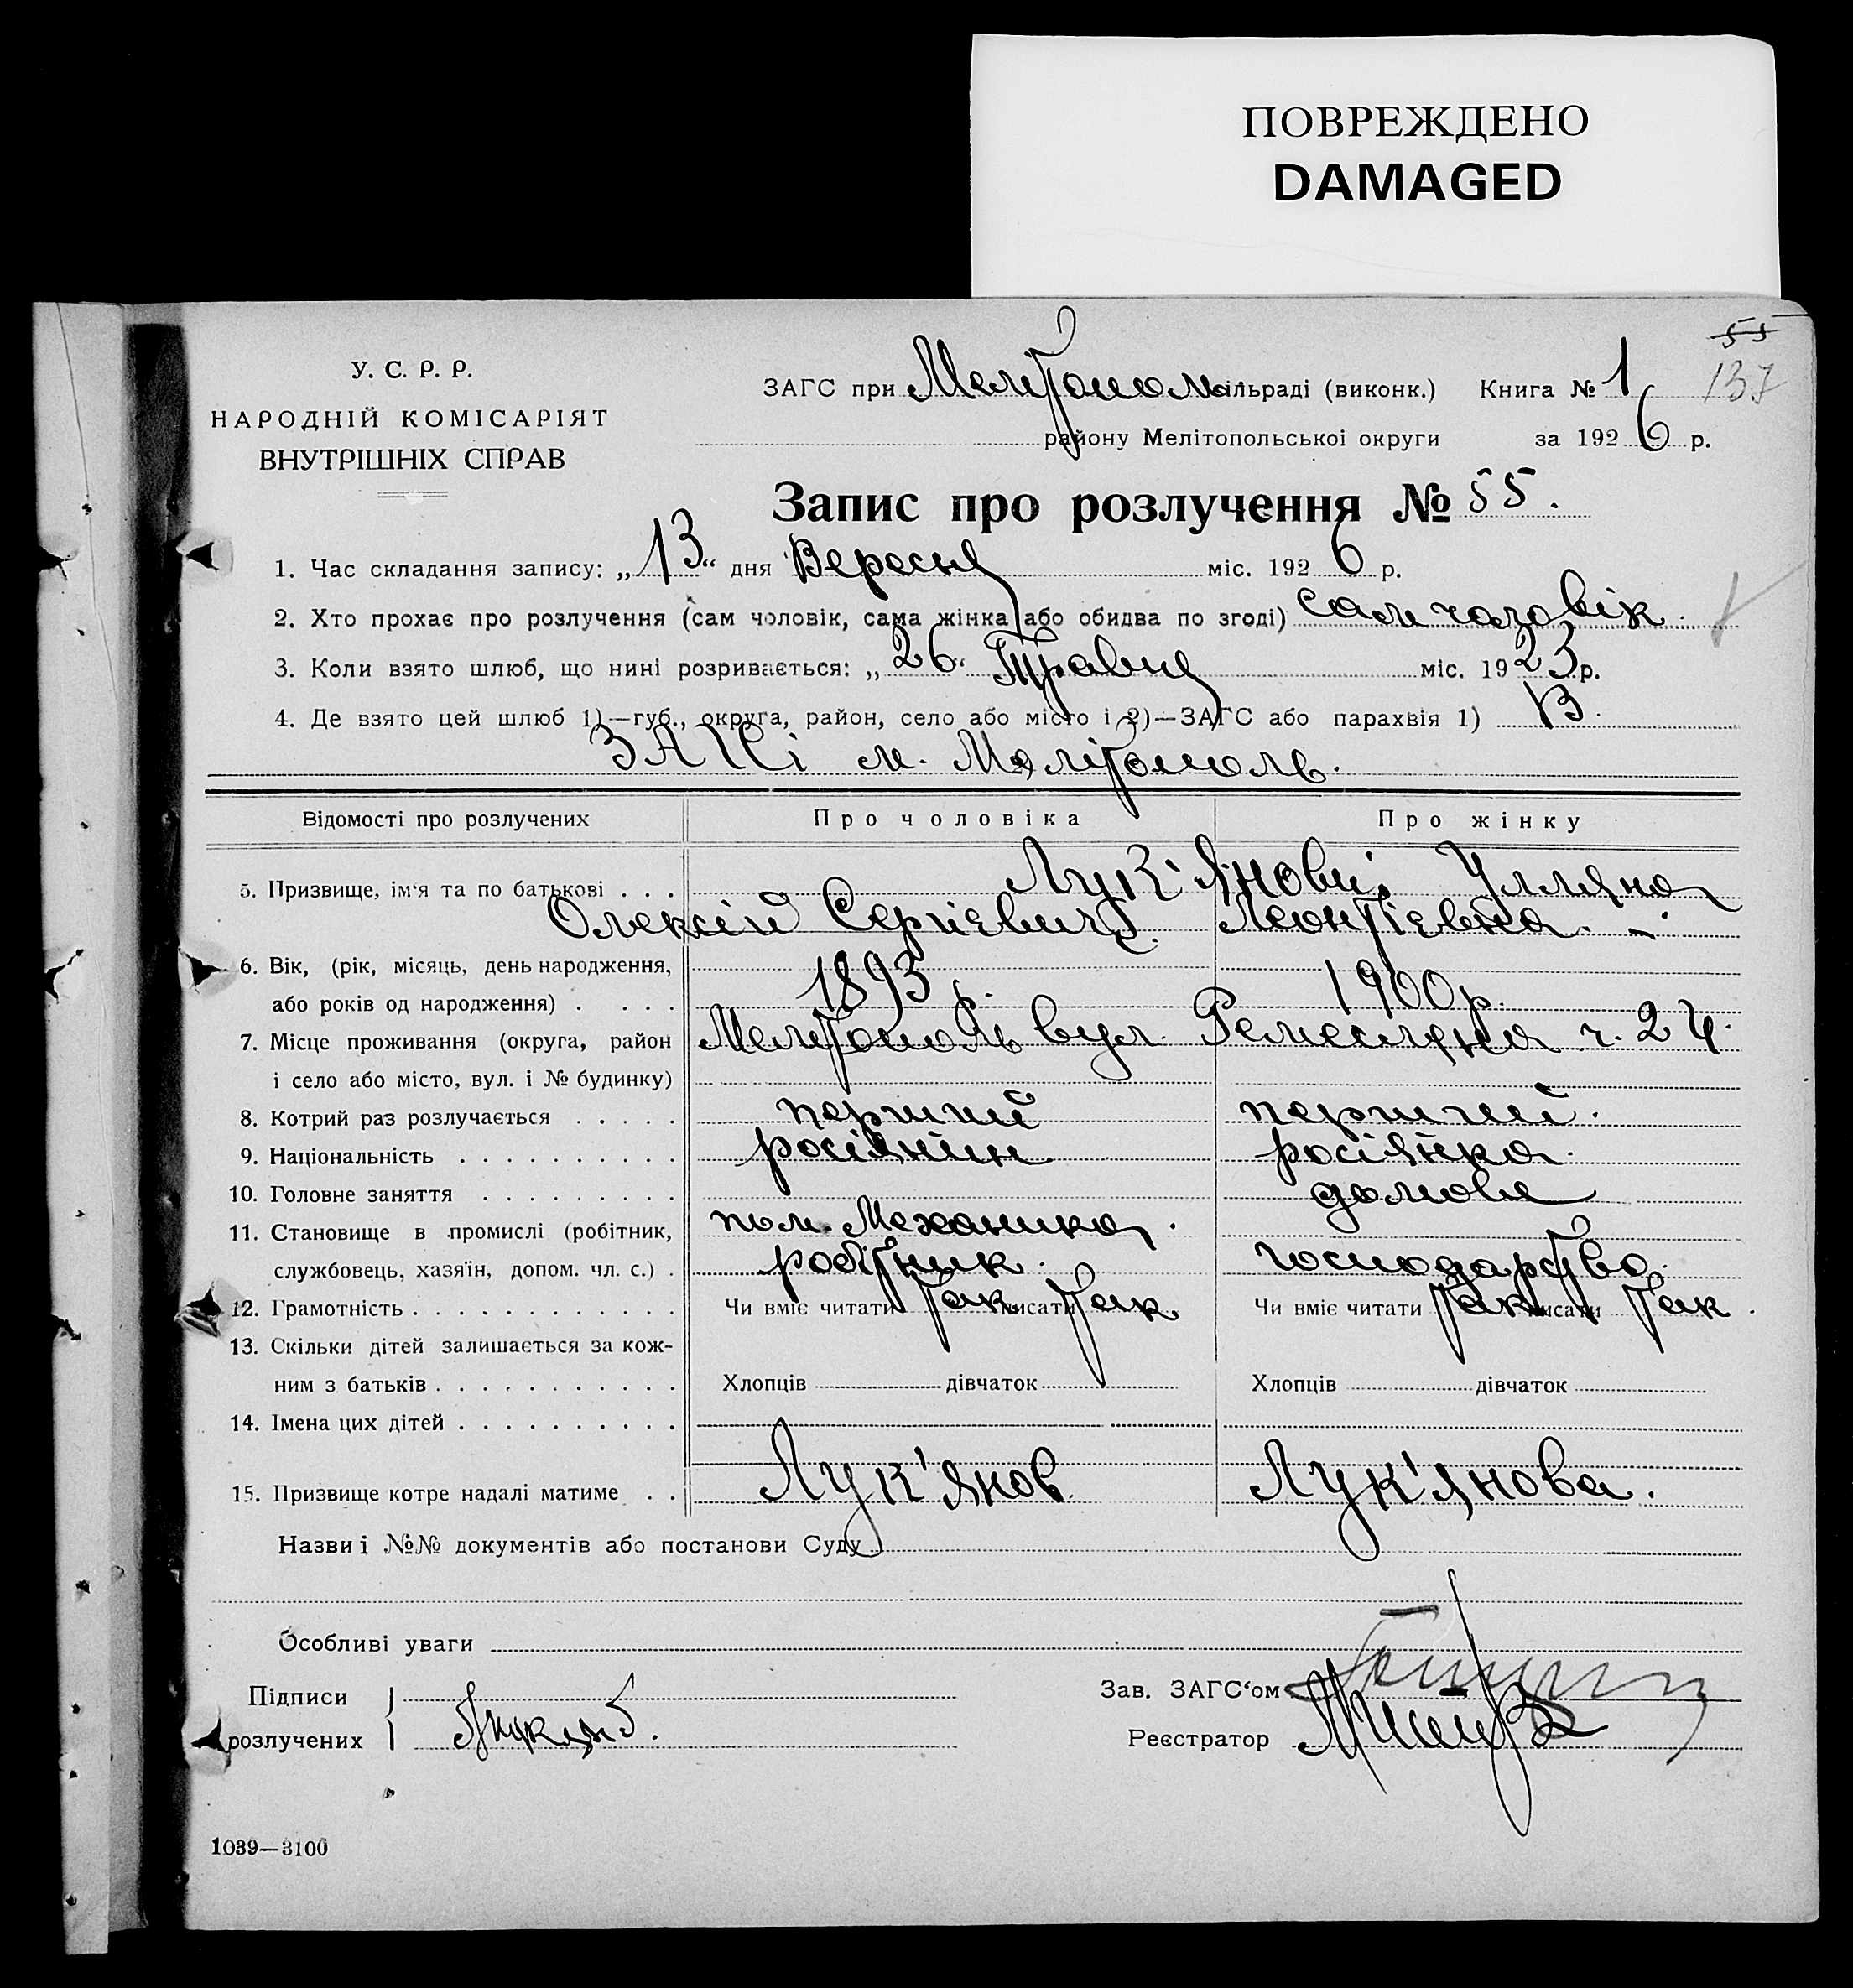 ПОВРЕЖДЕНО
DAMAGED
55
137
У. С. Р. Р.
НАРОДНІЙ КОМІСАРІЯТ
ВНУТРІШНІХ СПРАВ
ЗАГС при Мелітополь сільраді (виконк.) Книга № 1
району Мелітопольської округи за 1926 р.
Запис про розлучення № 55.
1. Час складання запису: „13“ дня Вересня міс. 1926 р.
2. Хто прохає про розлучення (сам чоловік, сама жінка або обидва по згоді) сам чоловік.
3. Коли взято шлюб, що нині розривається: „26“ Травня міс. 1923 р.
4. Де взято цей шлюб 1)—губ., округа, район, село або місто і 2)—ЗАГС або парахвія 1) В
ЗАГСі м. Мелітополь.
Відомості про розлучених Про чоловіка Про жінку
5. Призвище, ім'я та по батькові . . . Лук'янови: Улляна
Олексій Сергієвич. Леонтієвна. -
6. Вік, (рік, місяць, день народження,
або років од народження) . . . . 1893 р. 1900 р.
7. Місце проживання (округа, район Мелітополь вул. Ремеслена ч. 24.
і село або місто, вул. і № будинку)
8. Котрий раз розлучається . . . . . перший перший.
9. Національність . . . . . . . . . . росіянин росіянка.
10. Головне заняття . . . . . . . . . домове
11. Становище в промислі (робітник, пом. Механика.
службовець, хазяїн, допом. чл. с.) . робітник. господарство.
12. Грамотність . . . . . . . . . . . . Чи вміє читати так писати так Чи вміє читати так писати так.
13. Скільки дітей залишається за кож-
ним з батьків . . . . . . . . . . . Хлопців дівчаток Хлопців дівчаток
14. Імена цих дітей . . . . . . . . . .
15. Призвище котре надалі матиме . . Лук'янов Лук'янова.
Назви і №№ документів або постанови Суду
Особливі уваги
Підписи
розлучених
Зав. ЗАГС'ом
Реєстратор
1039—3100